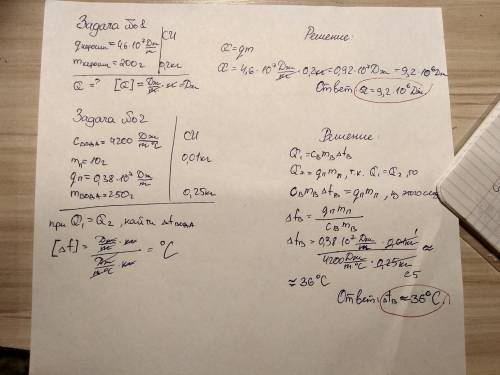 Задача №1
qкеросин = 4,6·10⁷ Дж/кг
СИ
mкеросин = 200г
0,2кг
Q = ? [Q] = Дж/кг · кг = Дж
Решение:
Q = qm
Q = 4,6·10⁷ Дж/кг · 0,2кг = 0,92·10⁷ Дж = 9,2·10⁶ Дж
Ответ: Q = 9,2·10⁶ Дж
Задача №2
Cвода = 4200 Дж/m°C
СИ
mп = 10г
0,01кг
qп = 0,38·10⁷ Дж/кг
mвода = 250г
0,25кг
при Q₁ = Q₂, найти Δtвода
[Δt] = (Дж/кг · кг)/(Дж/кг°C · кг) = °C
Решение:
Q₁ = CвmвΔtв
Q₂ = qпmп, т.к. Q₁ = Q₂, то
CвmвΔtв = qпmп, из этого
Δtв = qпmп/Cвmв
Δtв = (0,38·10⁷ Дж/кг · 0,01кг)/(4200 Дж/m°C · 0,25кг) ≈
1
25
≈ 36°C
Ответ: Δtв ≈ 36°C